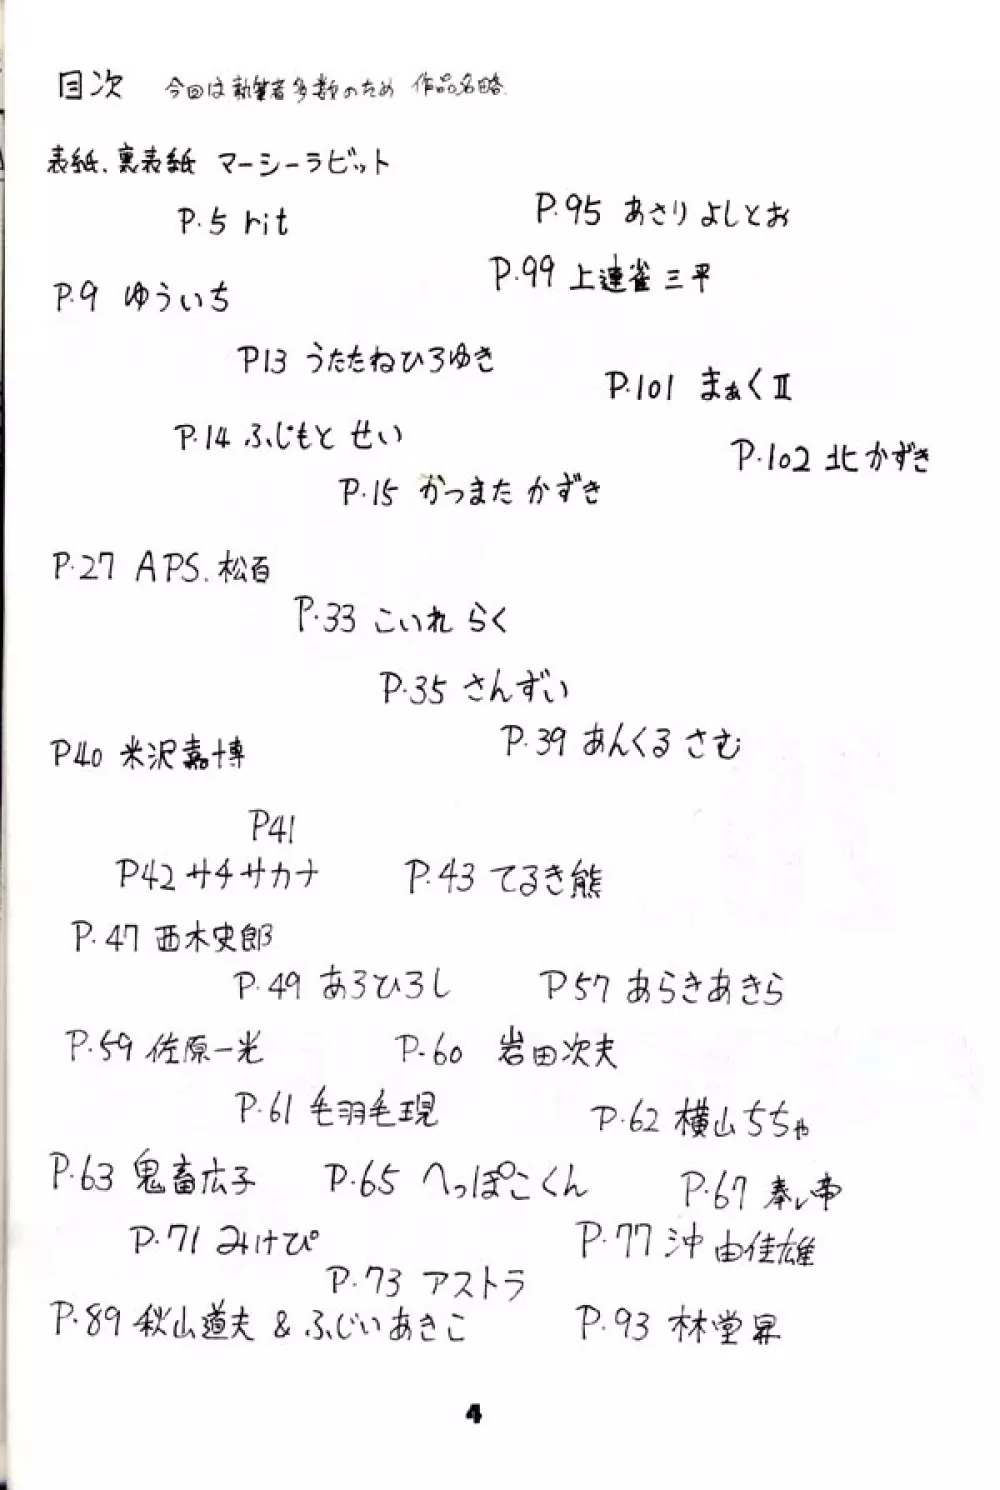 目次 今回は執筆者多数のため 作品名略.
表紙、裏表紙 マーシーラビット
P.5 rit
P.9 ゆういち
P13 うたたねひろゆき
P.14 ふじもと せい
P.15 かつまた かずき
P.27 APS.松百
P.33 こいれ らく
P.35 さんずい
P.39 あんくる さむ
P40 米沢嘉博
P41
P42 サチサカナ
P.43 てるき熊
P.47 西木史郎
P.49 あろひろし
P57 あらきあきら
P.59 佐原一光
P.60 岩田次夫
P.61 毛羽毛現
P.62 横山ちちゃ
P.63 鬼畜広子
P.65 へっぽこくん
P.67 奉レ帝
P.71 みけぴ
P.73 アストラ
P.77 沖由佳雄
P.89 秋山道夫 & ふじいあきこ
P.93 林堂昇
P.95 あさりよしとお
P.99 上連雀三平
P.101 まぁくⅡ
P.102 北かずき
4